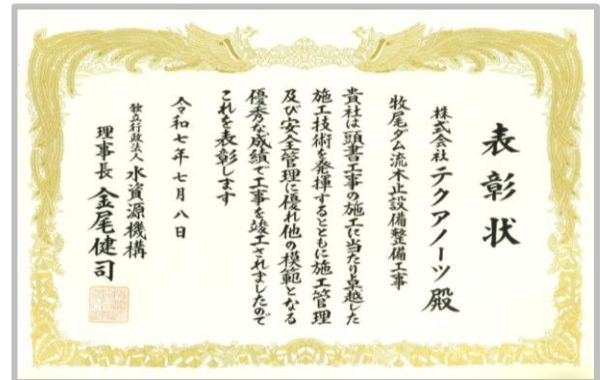 表彰状
株式会社テクアノーツ殿
牧尾ダム流木止設備整備工事
貴社は頭書工事の施工に当たり卓越した
施工技術を発揮するとともに施工管理
及び安全管理に優れ他の模範となる
優秀な成績で工事を竣工されましたので
これを表彰します
令和七年七月八日
独立行政法人水資源機構
理事長 金尾健司